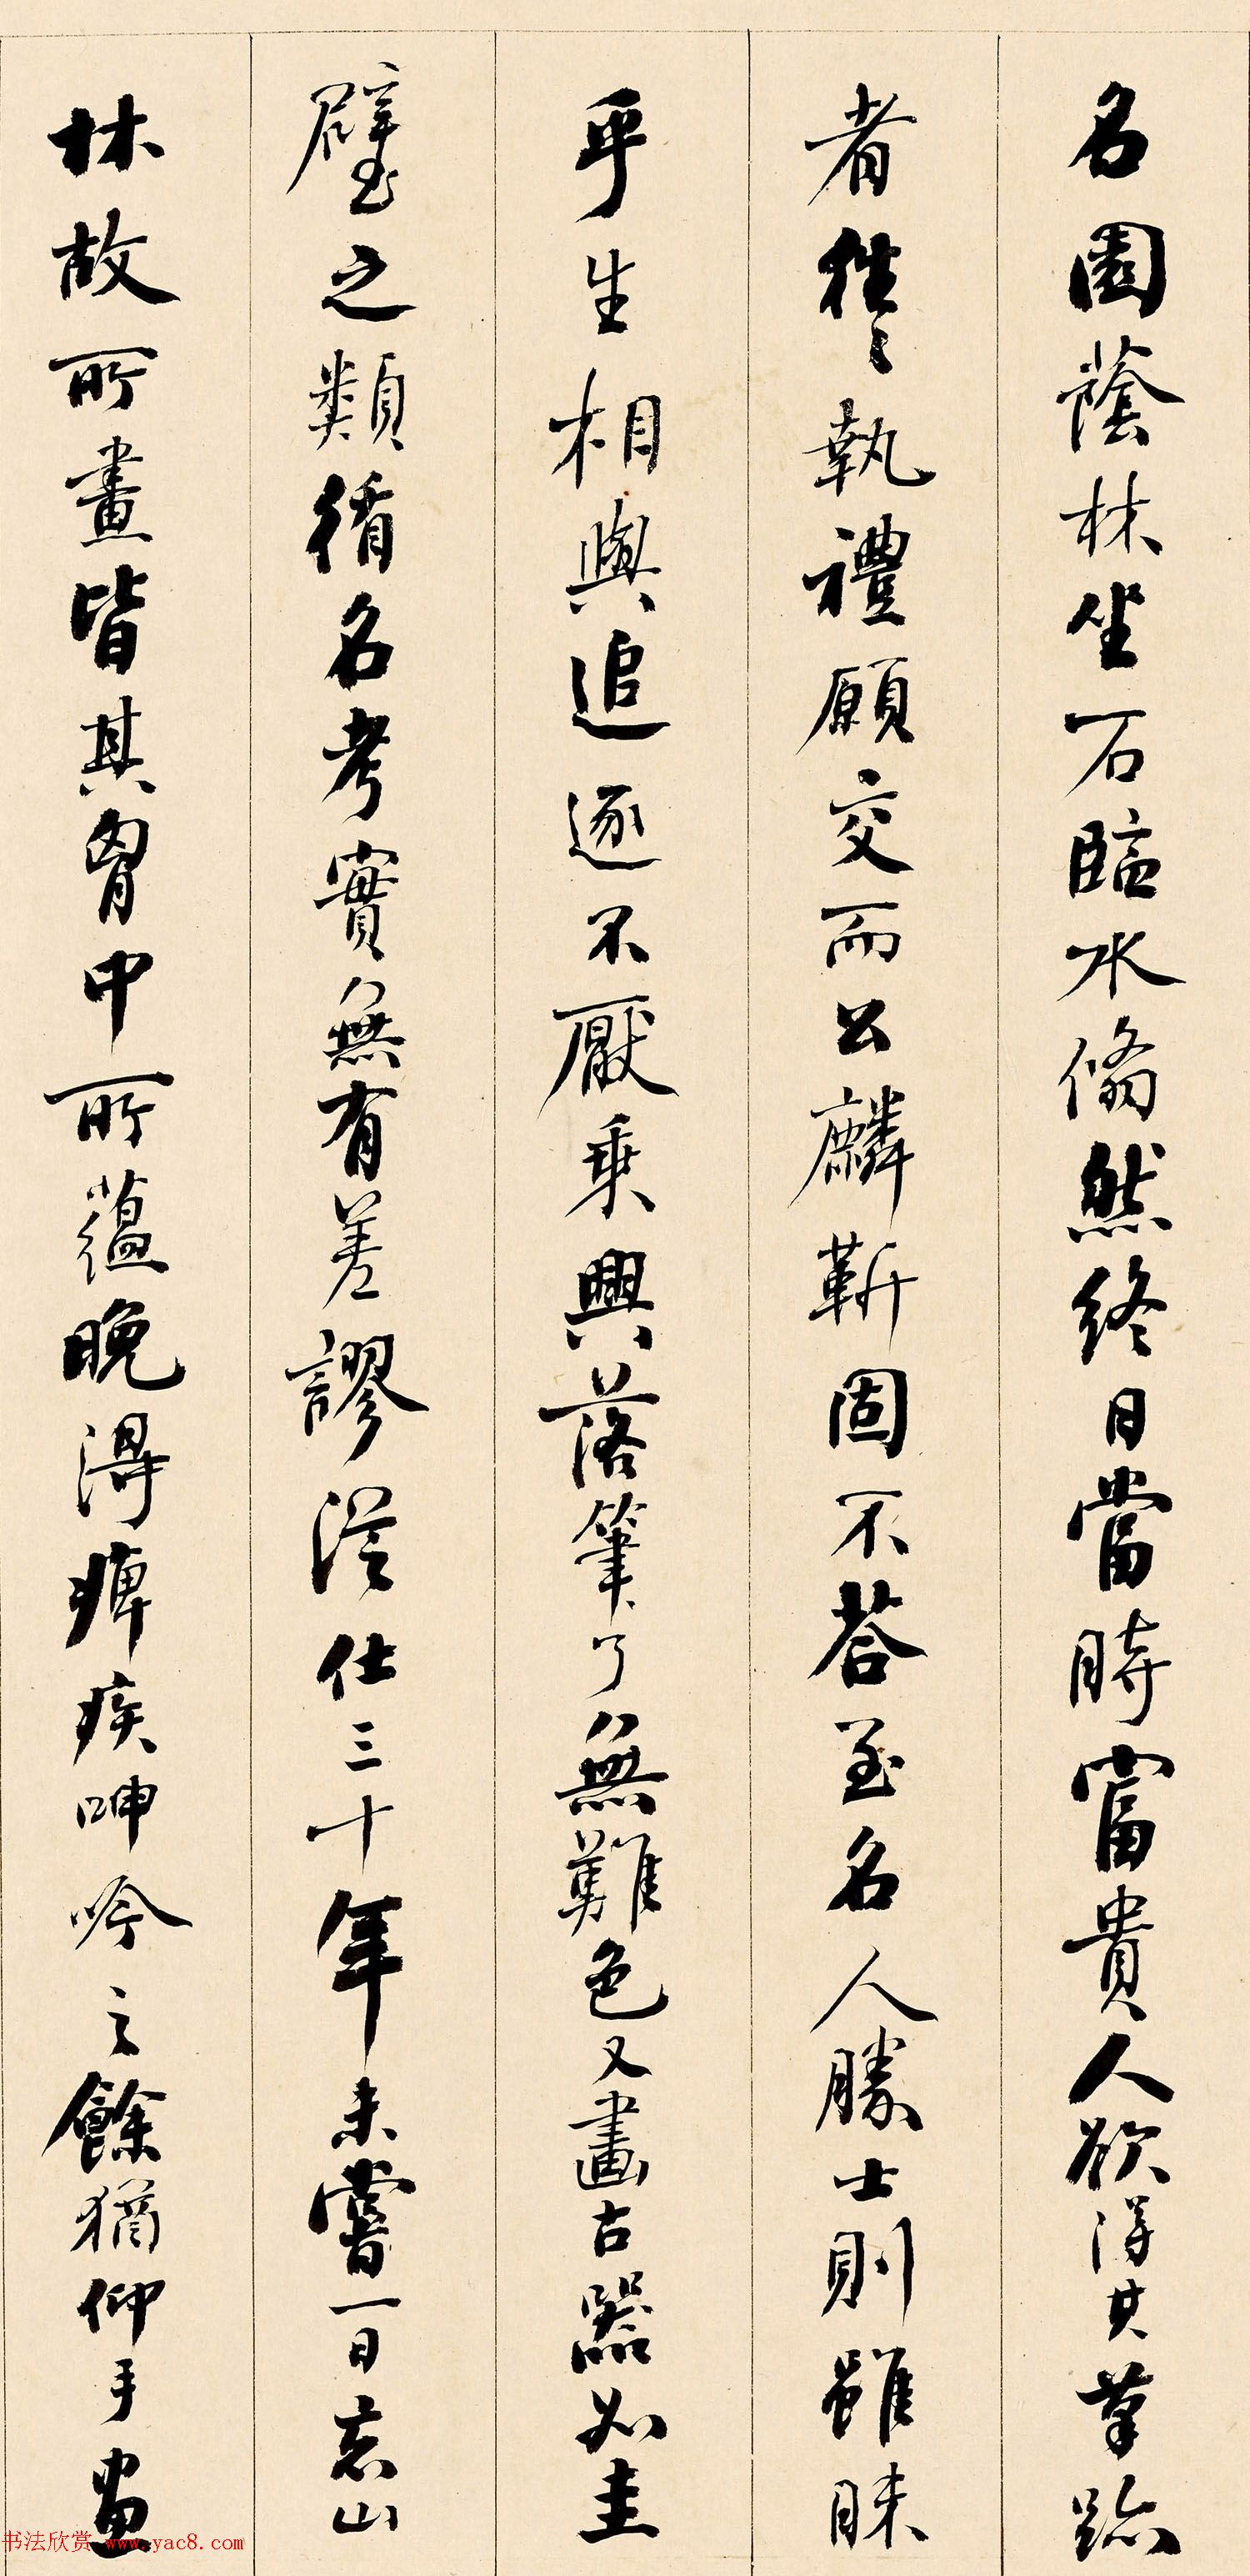 名園蔭林坐石臨水翛然終日當時富貴人欲得其筆跡
者往々執禮願交而公麟靳固不荅至名人勝士則雖昧
平生相與追逐不厭乘興落筆了無難色又畫古器如圭
璧之類循名考實無有差謬從仕三十年未嘗一日忘山
林故所畫皆其胷中所蘊晚得痺疾呻吟之餘猶仰手畫
书法欣赏 www.yac8.com